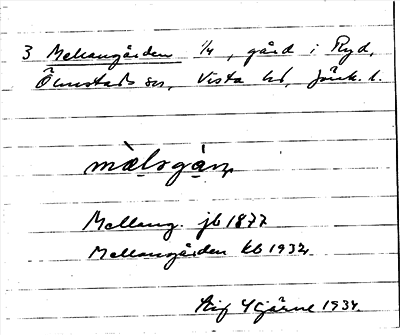 3 Mellangården 1/4, gård i Ryd,
Ölmstads sn, Vista hd, Jönk. l.
Mellang. jb 1877
Mellangården kb 1932.
Stig Ytgärne 1934.